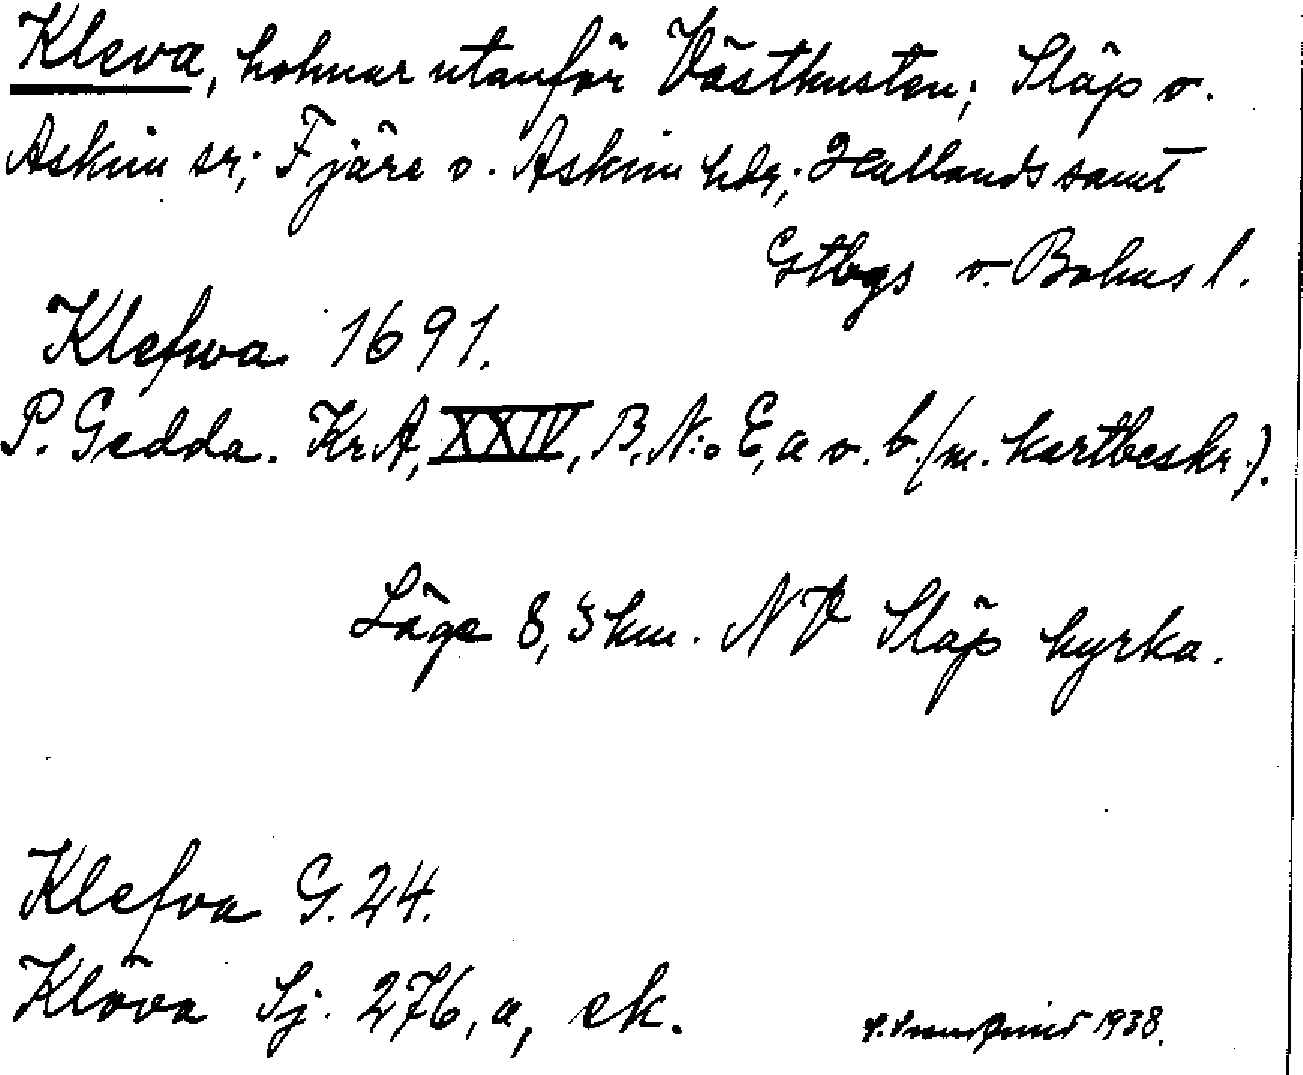 Kleva, holmar utanför Västkusten; Släp o.
Askim sr; Fjäre o. Askim hdr; Hallands samt
Gtbgs o. Bohus l.
Klefwa 1691.
P. Gedda. Kr A, XXIV, B. N:o E, a o. b (m. kartbeskr.).
Läge 8,5 km. NV Släp kyrka.
Klefva G. 24.
Klöva Sj. 276, a, ek.
1938.